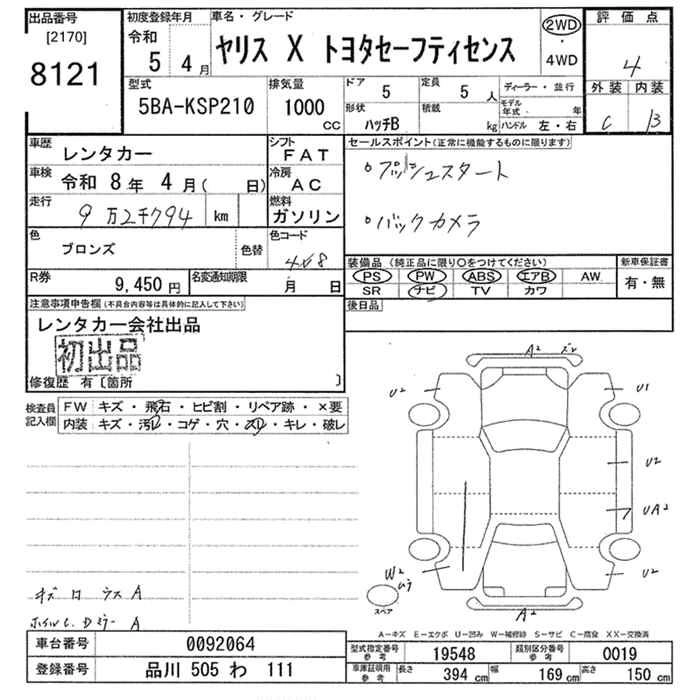 出品番号
[2170]
8121
初度登録年月
令和
5 4月
車名・グレード
ヤリス X トヨタセーフティセンス
2WD
・
4WD
評価点
4
外装 内装
C B
型式
5BA-KSP210
排気量
1000
CC
ドア
5
定員
5 人
形状
ハッチB
積載
kg
ディーラー・並行
モデル年式 年
ハンドル 左・右
車歴
レンタカー
シフト
FAT
車検
令和 8年 4月( 日)
冷房
AC
走行
9万2千794 km
燃料
ガソリン
色
ブロンズ
色替
色コード
4V8
R券
9,450円
名変通知期限
月 日
セールスポイント(正常に機能するものに限ります)
・プッシュスタート
・バックカメラ
装備品(純正品に限り○をつけてください)
PS PW ABS エアB AW
SR ナビ TV カワ
新車保証書
有・無
後日品
注意事項申告欄(不具合内容等は具体的に記入して下さい)
レンタカー会社出品
初出品
修復歴 有〔箇所 〕
検査員
記入欄
FW キズ・飛石・ヒビ割・リペア跡・×要
内装 キズ・汚レ・コゲ・穴・スレ・キレ・破レ
A2
U2
U1
U2
UA2
U2
W2
A2
スペア
A
A
A-キズ E-エクボ U-凹み W-補修跡 S-サビ C-腐食 XX-交換済
車台番号
0092064
登録番号
品川 505 わ 111
型式指定番号
参考
19548
類別区分番号
参考
0019
車庫証明用
参考
長さ
394 cm
幅
169 cm
高さ
150 cm